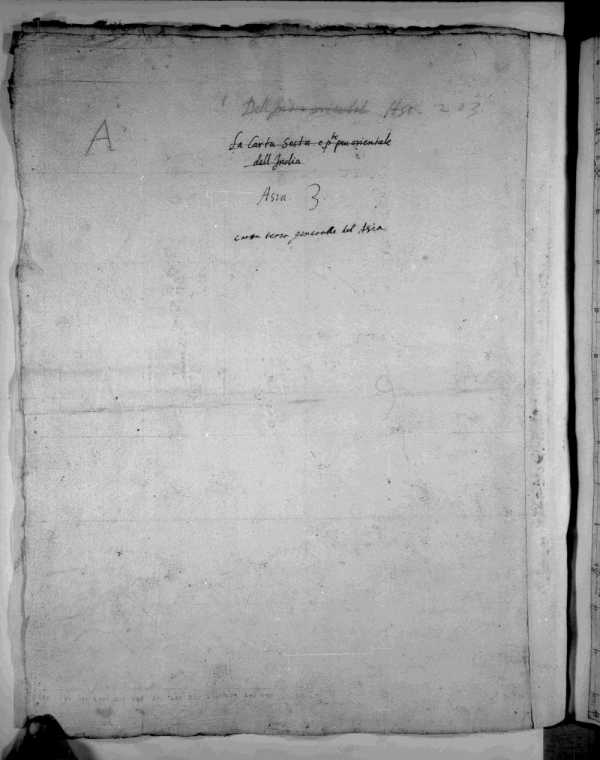 Dell India orientale Asr. 203
A
La Carta Sesta e pte piu orientale
dell India
Asia 3
carta terza generalle del Asia
9